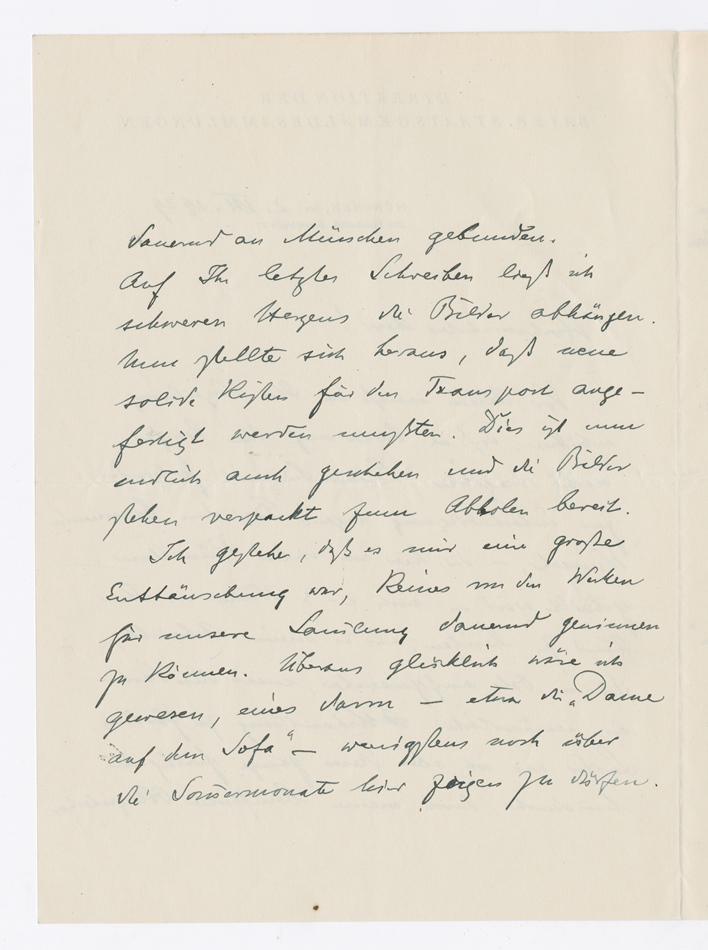 dauernd an München gebunden.
Auf Ihr letztes Schreiben ließ ich
schweren Herzens die Bilder abhängen.
Nun stellte sich heraus, daß neue
solide Kisten für den Transport ange-
fertigt werden mußten. Dies ist nun
endlich auch geschehen und die Bilder
stehen verpackt zum Abholen bereit.
Ich gestehe, daß es mir eine große
Enttäuschung war, keines von den Werken
für unsere Samlung dauernd gewinnen
zu können. Überaus glücklich wäre ich
gewesen, eines davon – etwa die „Dame
auf dem Sofa“ – wenigstens noch über
die Sommermonate hier zeigen zu dürfen.